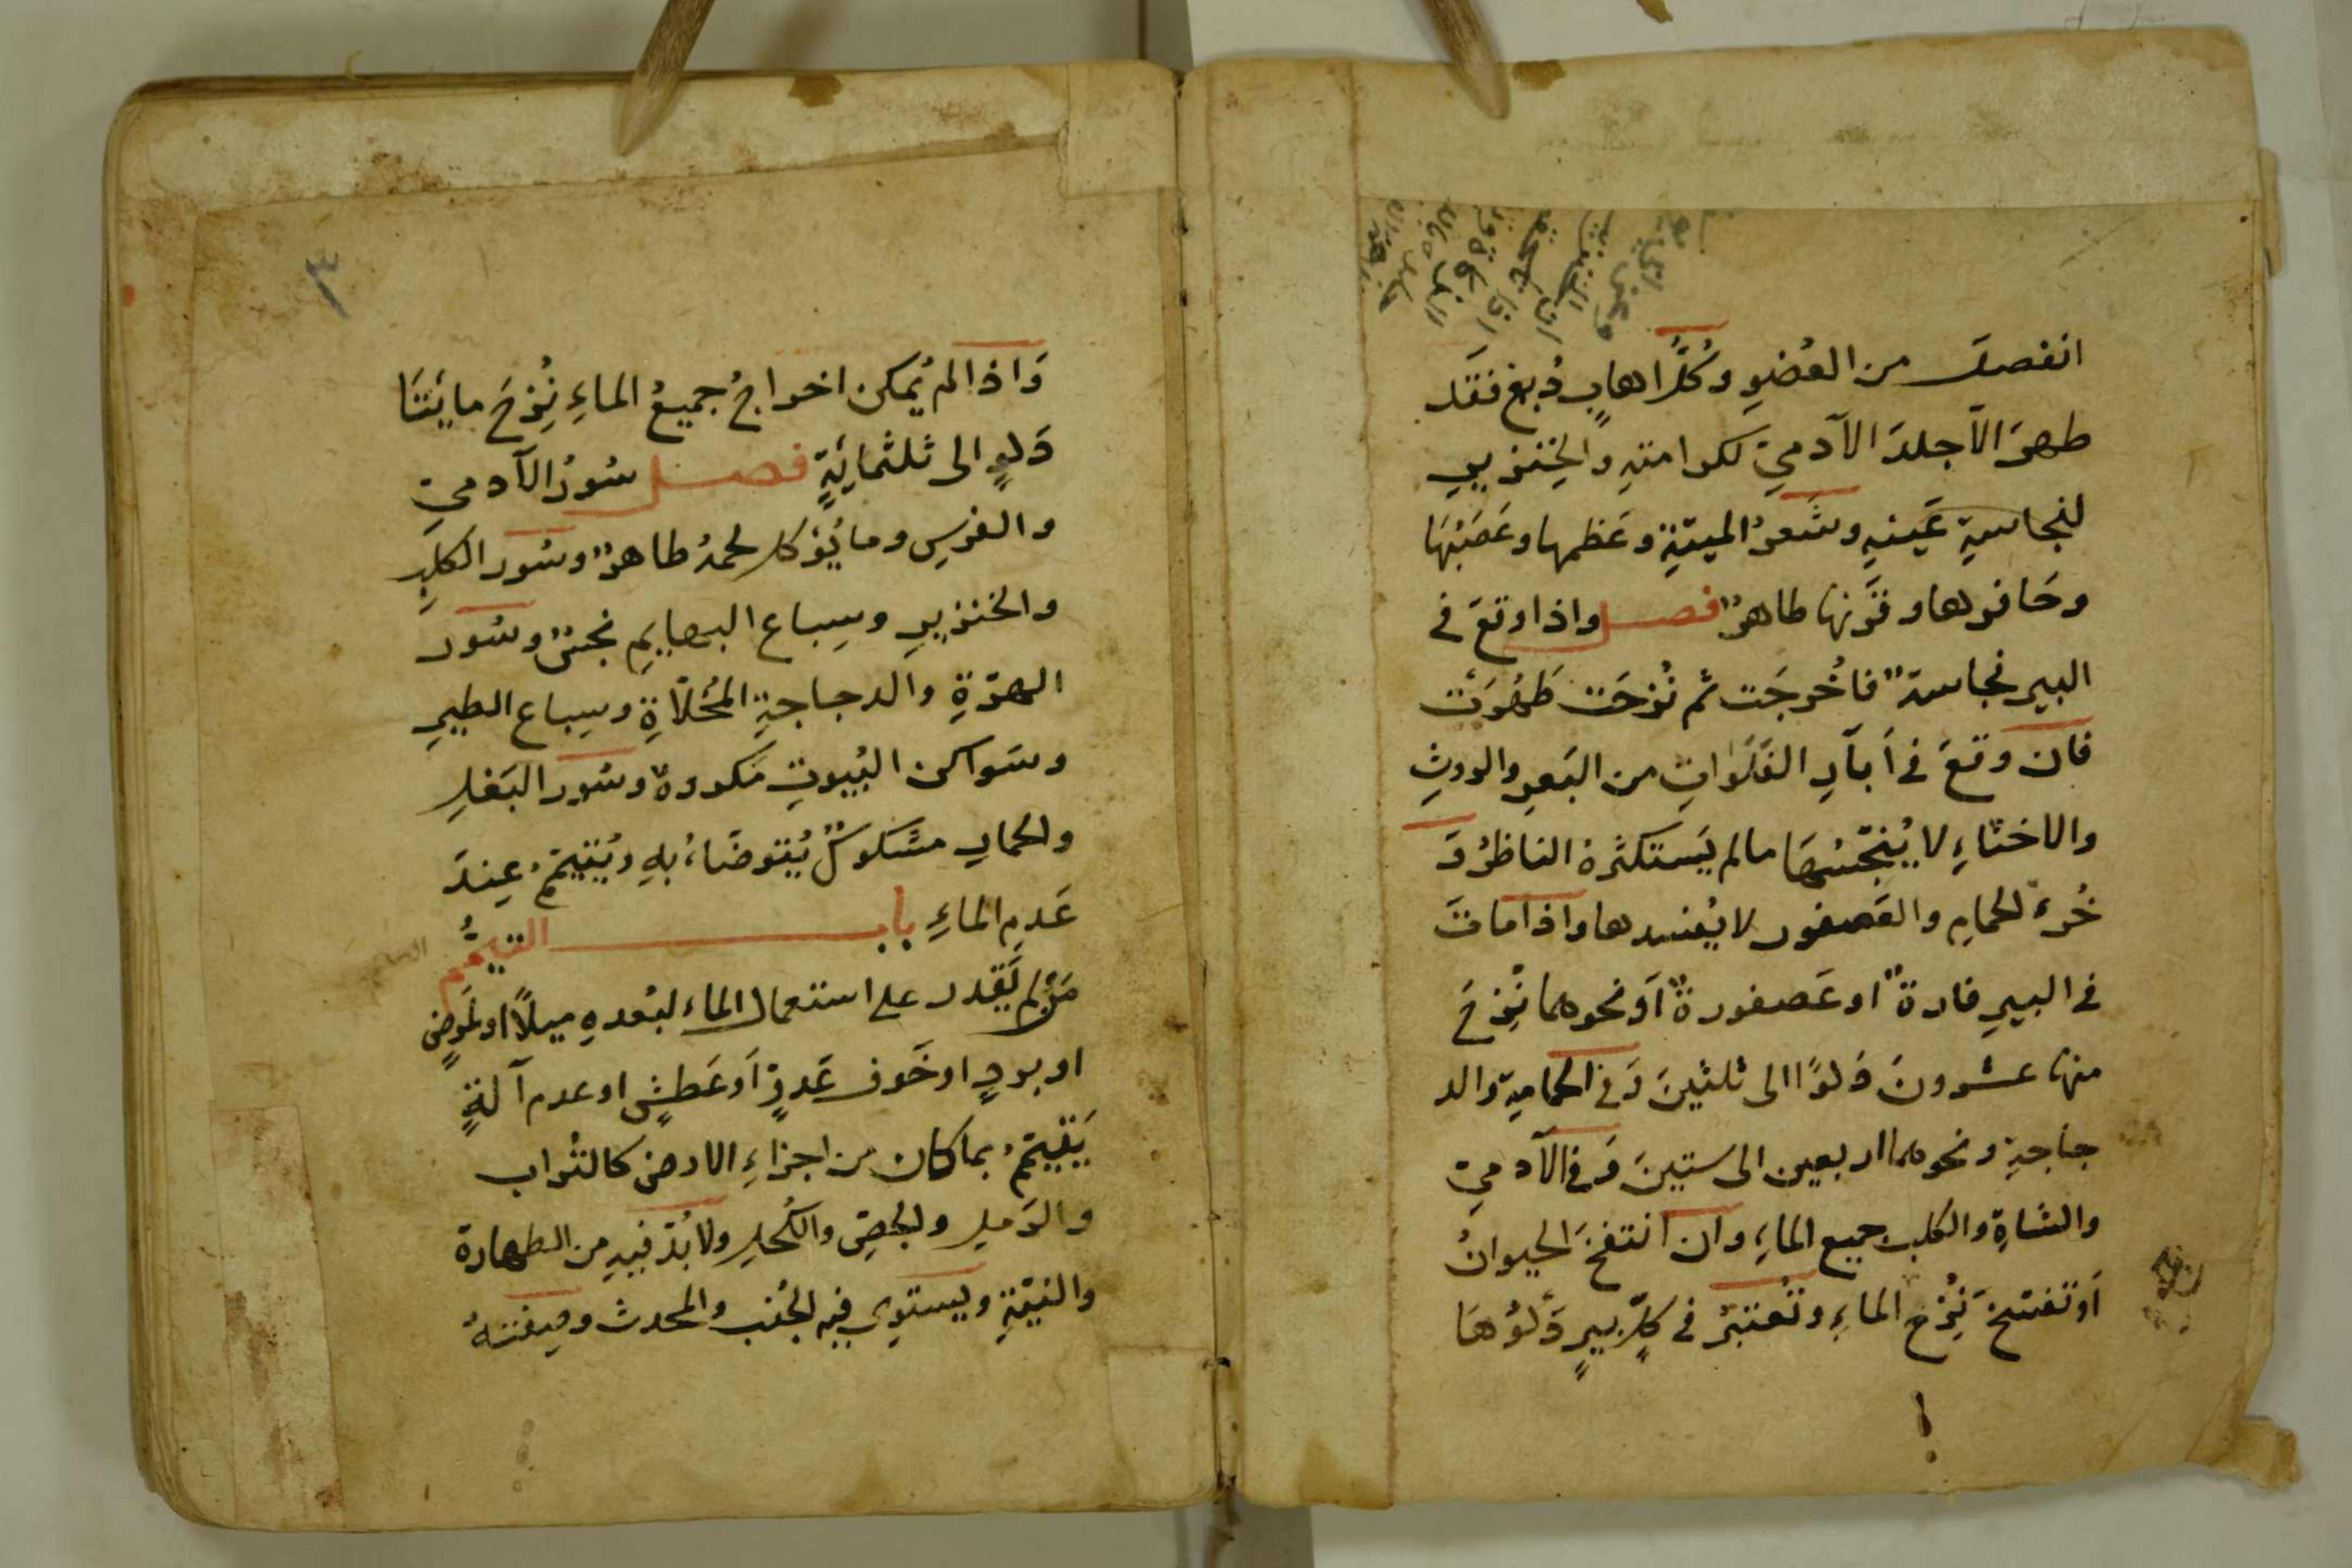 انفصل من العُضوِ وكُلُّ اهابٍ دُبغ فقَد
طهرَ الّا جلدَ الآدميّ لكرامتهِ والخِنزيرِ
لنجاسةِ عَينهِ وشَعرُ الميتةِ وعَظمها وعَصَبُهَا
وحَافرها وقَرنها طاهرٌ فصل واذا وقعَ في
البيرِ نجاسةٌ فاُخرجَت ثم نُزحَت طَهُرَت
فان وقعَ في اَبآرِ الفَلَواتِ من البَعرِ والروثِ
والاخثاءِ لا يُنجّسُهَا مالم يَستكثرهُ الناظرُ وَ
خُرءُ الحمامِ والعَصفور لا يُفسدها واذا ماتَ
في البيرِ فارةٌ او عَصفورةٌ اَو نحوهما نُزحَ
منها عشرونَ دَلوًا الى ثلثينَ وَفي الحمامةِ والد
جاجةِ ونحوهما اربعين الى ستينَ وَفي الآدميّ
والشاةِ والكلب جميع الماءِ وان انتفخَ الحيوانُ
اَو تفسّخَ نُزح الماءِ وتُعتبَرُ في كلِّ بيرٍ دَلوُهَا
٣
وَاذا لم يُمكن اخراجُ جميعُ الماءِ نُزحَ مايَتَا
دَلوٍ الى ثلثمايَةٍ فصل سُورُ الآدميّ
والفرسِ وما يُؤكل لحمهُ طاهرٌ وسُور الكلبِ
والخنزيرِ وسِباع البهايمِ نجسٌ وسُور
الهرّةِ والدجاجةِ المُخلّاةِ وسِباع الطيرِ
وسَواكن البُيوتِ مَكروهٌ وسُور البَغلِ
والحمارِ مشكوكٌ يُتوضّاءُ بهِ ويُتيمّمُ عِندَ
عَدمِ الماءِ باب التيمُّم
مَن لم يَقدر على استعمال الماء لبُعدهِ ميلًا او لمَرضٍ
او بردٍ او خَوف عَدوٍّ اَو عَطشٍ او عدم آلةٍ
يَتيمّمُ بما كان من اجزاءِ الارض كالتُراب
والرَملِ والجصِّ والكُحلِ ولا بُدّ فيهِ من الطهارة
والنيّةِ ويستوِي فيهِ الجُنب والمحدث وصِفتهُ